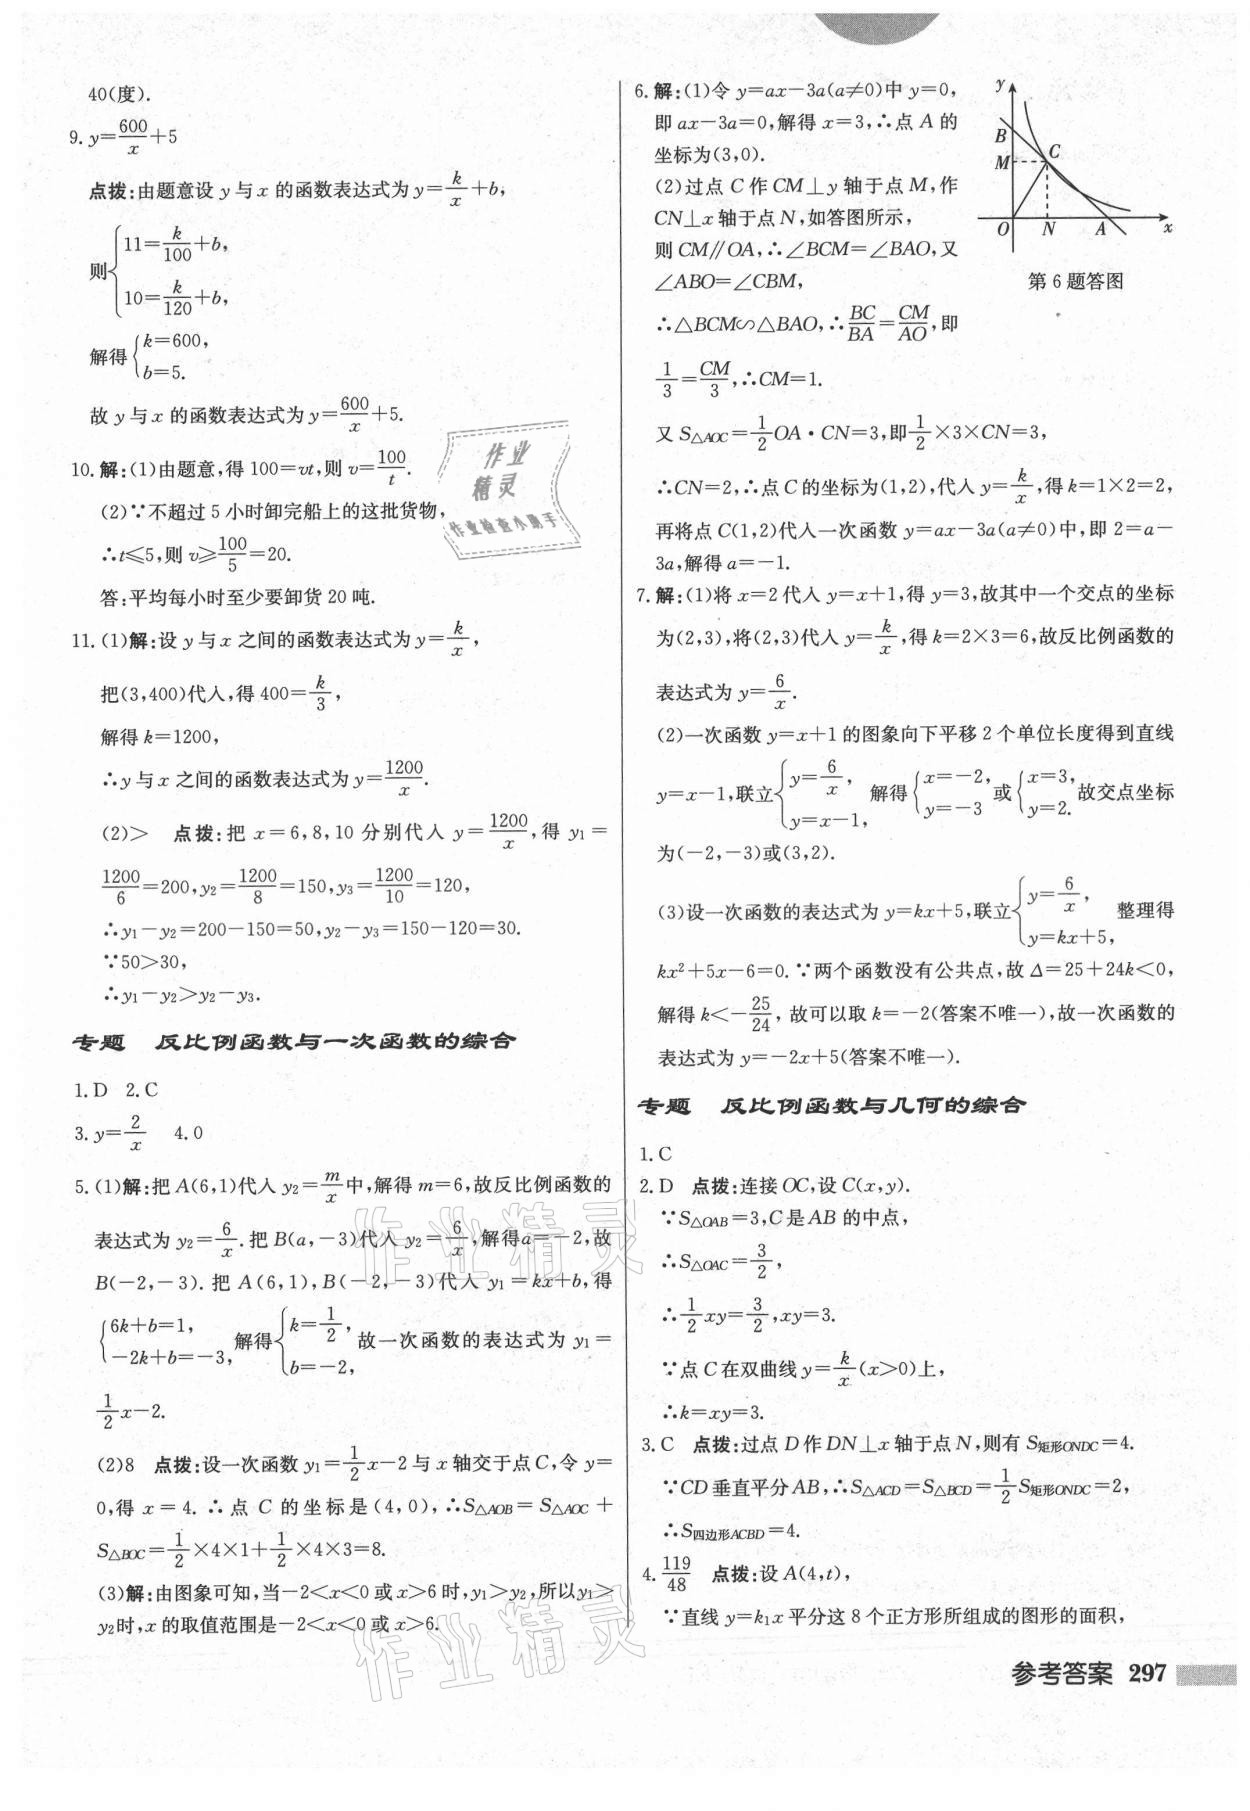 40(度).
9. y=600/x+5
点拨:由题意设 y 与 x 的函数表达式为 y=k/x+b,
则{11=k/100+b,
10=k/120+b,
解得{k=600,
b=5.
故 y 与 x 的函数表达式为 y=600/x+5.
10. 解:(1)由题意,得 100=vt,则 v=100/t.
(2)∵不超过 5 小时卸完船上的这批货物,
∴t≤5,则 v≥100/5=20.
答:平均每小时至少要卸货 20 吨.
11. (1)解:设 y 与 x 之间的函数表达式为 y=k/x,
把(3,400)代入,得 400=k/3,
解得 k=1200,
∴y 与 x 之间的函数表达式为 y=1200/x.
(2)> 点拨:把 x=6,8,10 分别代入 y=1200/x,得 y₁=
1200/6=200,y₂=1200/8=150,y₃=1200/10=120,
∴y₁-y₂=200-150=50,y₂-y₃=150-120=30.
∵50>30,
∴y₁-y₂>y₂-y₃.
专题 反比例函数与一次函数的综合
1. D 2. C
3. y=2/x 4. 0
5. (1)解:把 A(6,1)代入 y₂=m/x中,解得 m=6,故反比例函数的
表达式为 y₂=6/x.把 B(a,-3)代入 y₂=6/x,解得a=-2,故
B(-2,-3).把 A(6,1),B(-2,-3)代入 y₁=kx+b,得
{6k+b=1,
-2k+b=-3, 解得{k=1/2,
b=-2, 故一次函数的表达式为 y₁=
1/2x-2.
(2)8 点拨:设一次函数 y₁=1/2x-2 与 x 轴交于点 C,令 y=
0,得 x=4.∴点 C 的坐标是(4,0),∴S△AOB=S△AOC+
S△BOC=1/2×4×1+1/2×4×3=8.
(3)解:由图象可知,当-2<x<0 或 x>6 时,y₁>y₂,所以y₁>
y₂时,x 的取值范围是-2<x<0 或 x>6.
6. 解:(1)令 y=ax-3a(a≠0)中 y=0,
即 ax-3a=0,解得 x=3,∴点 A 的
坐标为(3,0).
(2)过点 C 作 CM⊥y 轴于点 M,作
CN⊥x 轴于点 N,如答图所示,
则 CM∥OA,∴∠BCM=∠BAO,又
∠ABO=∠CBM,
∴△BCM∽△BAO,∴BC/BA=CM/AO,即
1/3=CM/3,∴CM=1.
y
B
M
C
O
N
A
x
第 6 题答图
又 S△AOC=1/2OA·CN=3,即1/2×3×CN=3,
∴CN=2,∴点 C 的坐标为(1,2),代入 y=k/x,得 k=1×2=2,
再将点 C(1,2)代入一次函数 y=ax-3a(a≠0)中,即 2=a-
3a,解得 a=-1.
7. 解:(1)将 x=2 代入 y=x+1,得 y=3,故其中一个交点的坐标
为(2,3),将(2,3)代入 y=k/x,得 k=2×3=6,故反比例函数的
表达式为 y=6/x.
(2)一次函数 y=x+1 的图象向下平移 2 个单位长度得到直线
y=x-1,联立{y=6/x,
y=x-1, 解得{x=-2,
y=-3 或{x=3,
y=2. 故交点坐标
为(-2,-3)或(3,2).
(3)设一次函数的表达式为 y=kx+5,联立{y=6/x,
y=kx+5, 整理得
kx²+5x-6=0.∵两个函数没有公共点,故 Δ=25+24k<0,
解得 k<-25/24,故可以取 k=-2(答案不唯一),故一次函数的
表达式为 y=-2x+5(答案不唯一).
专题 反比例函数与几何的综合
1. C
2. D 点拨:连接 OC,设 C(x,y).
∵S△OAB=3,C 是 AB 的中点,
∴S△OAC=3/2,
∴1/2xy=3/2,xy=3.
∵点 C 在双曲线 y=k/x(x>0)上,
∴k=xy=3.
3. C 点拨:过点 D 作 DN⊥x 轴于点 N,则有 S矩形ONDC=4.
∵CD 垂直平分 AB,∴S△ACD=S△BCD=1/2S矩形ONDC=2,
∴S四边形ACBD=4.
4. 119/48 点拨:设 A(4,t),
∵直线 y=k₁x 平分这 8 个正方形所组成的图形的面积,
参考答案 297
作业
精灵
作业检查小助手
作业精灵
作业精灵